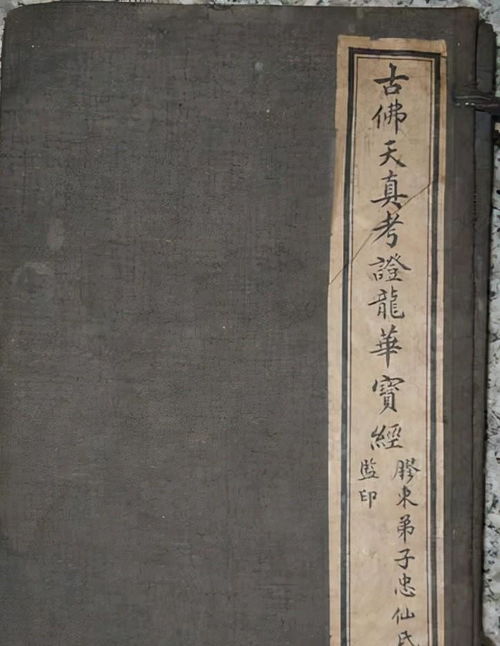 古佛天真考證龍華寶經
膠東弟子忠仙氏
監印